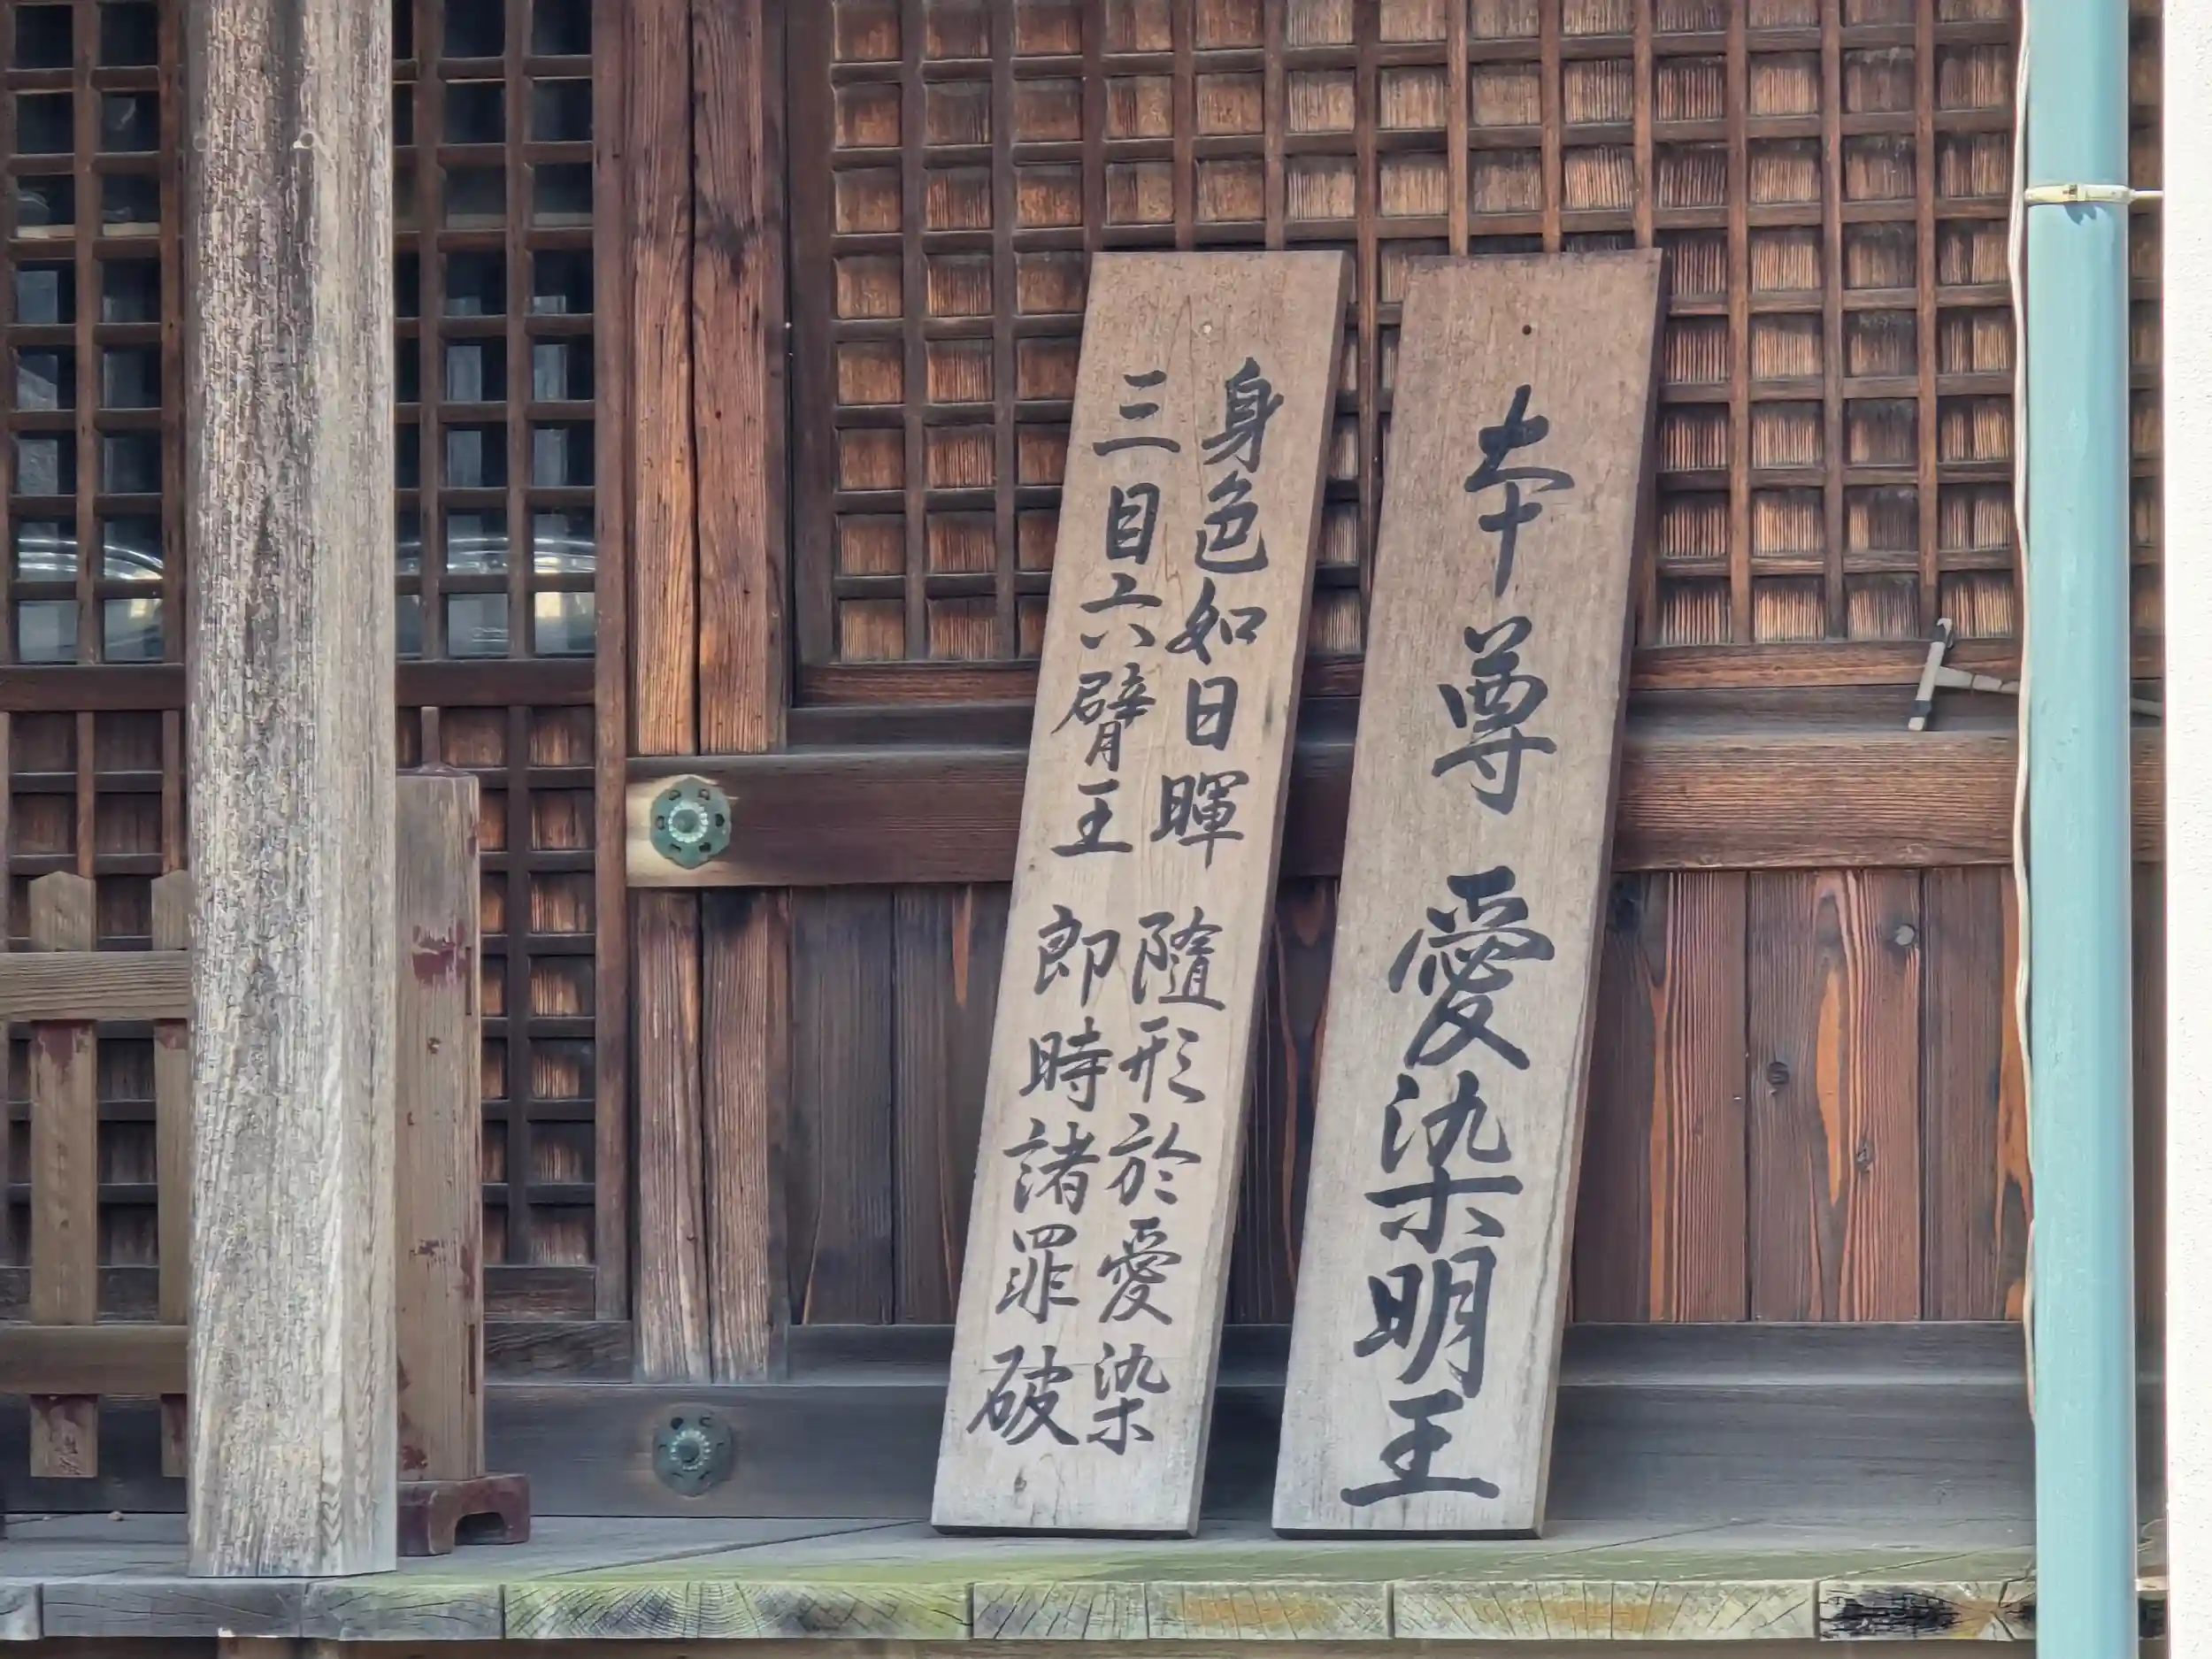 本尊 愛染明王
身色如日暉 隨形於愛染
三目六臂王 即時諸罪破